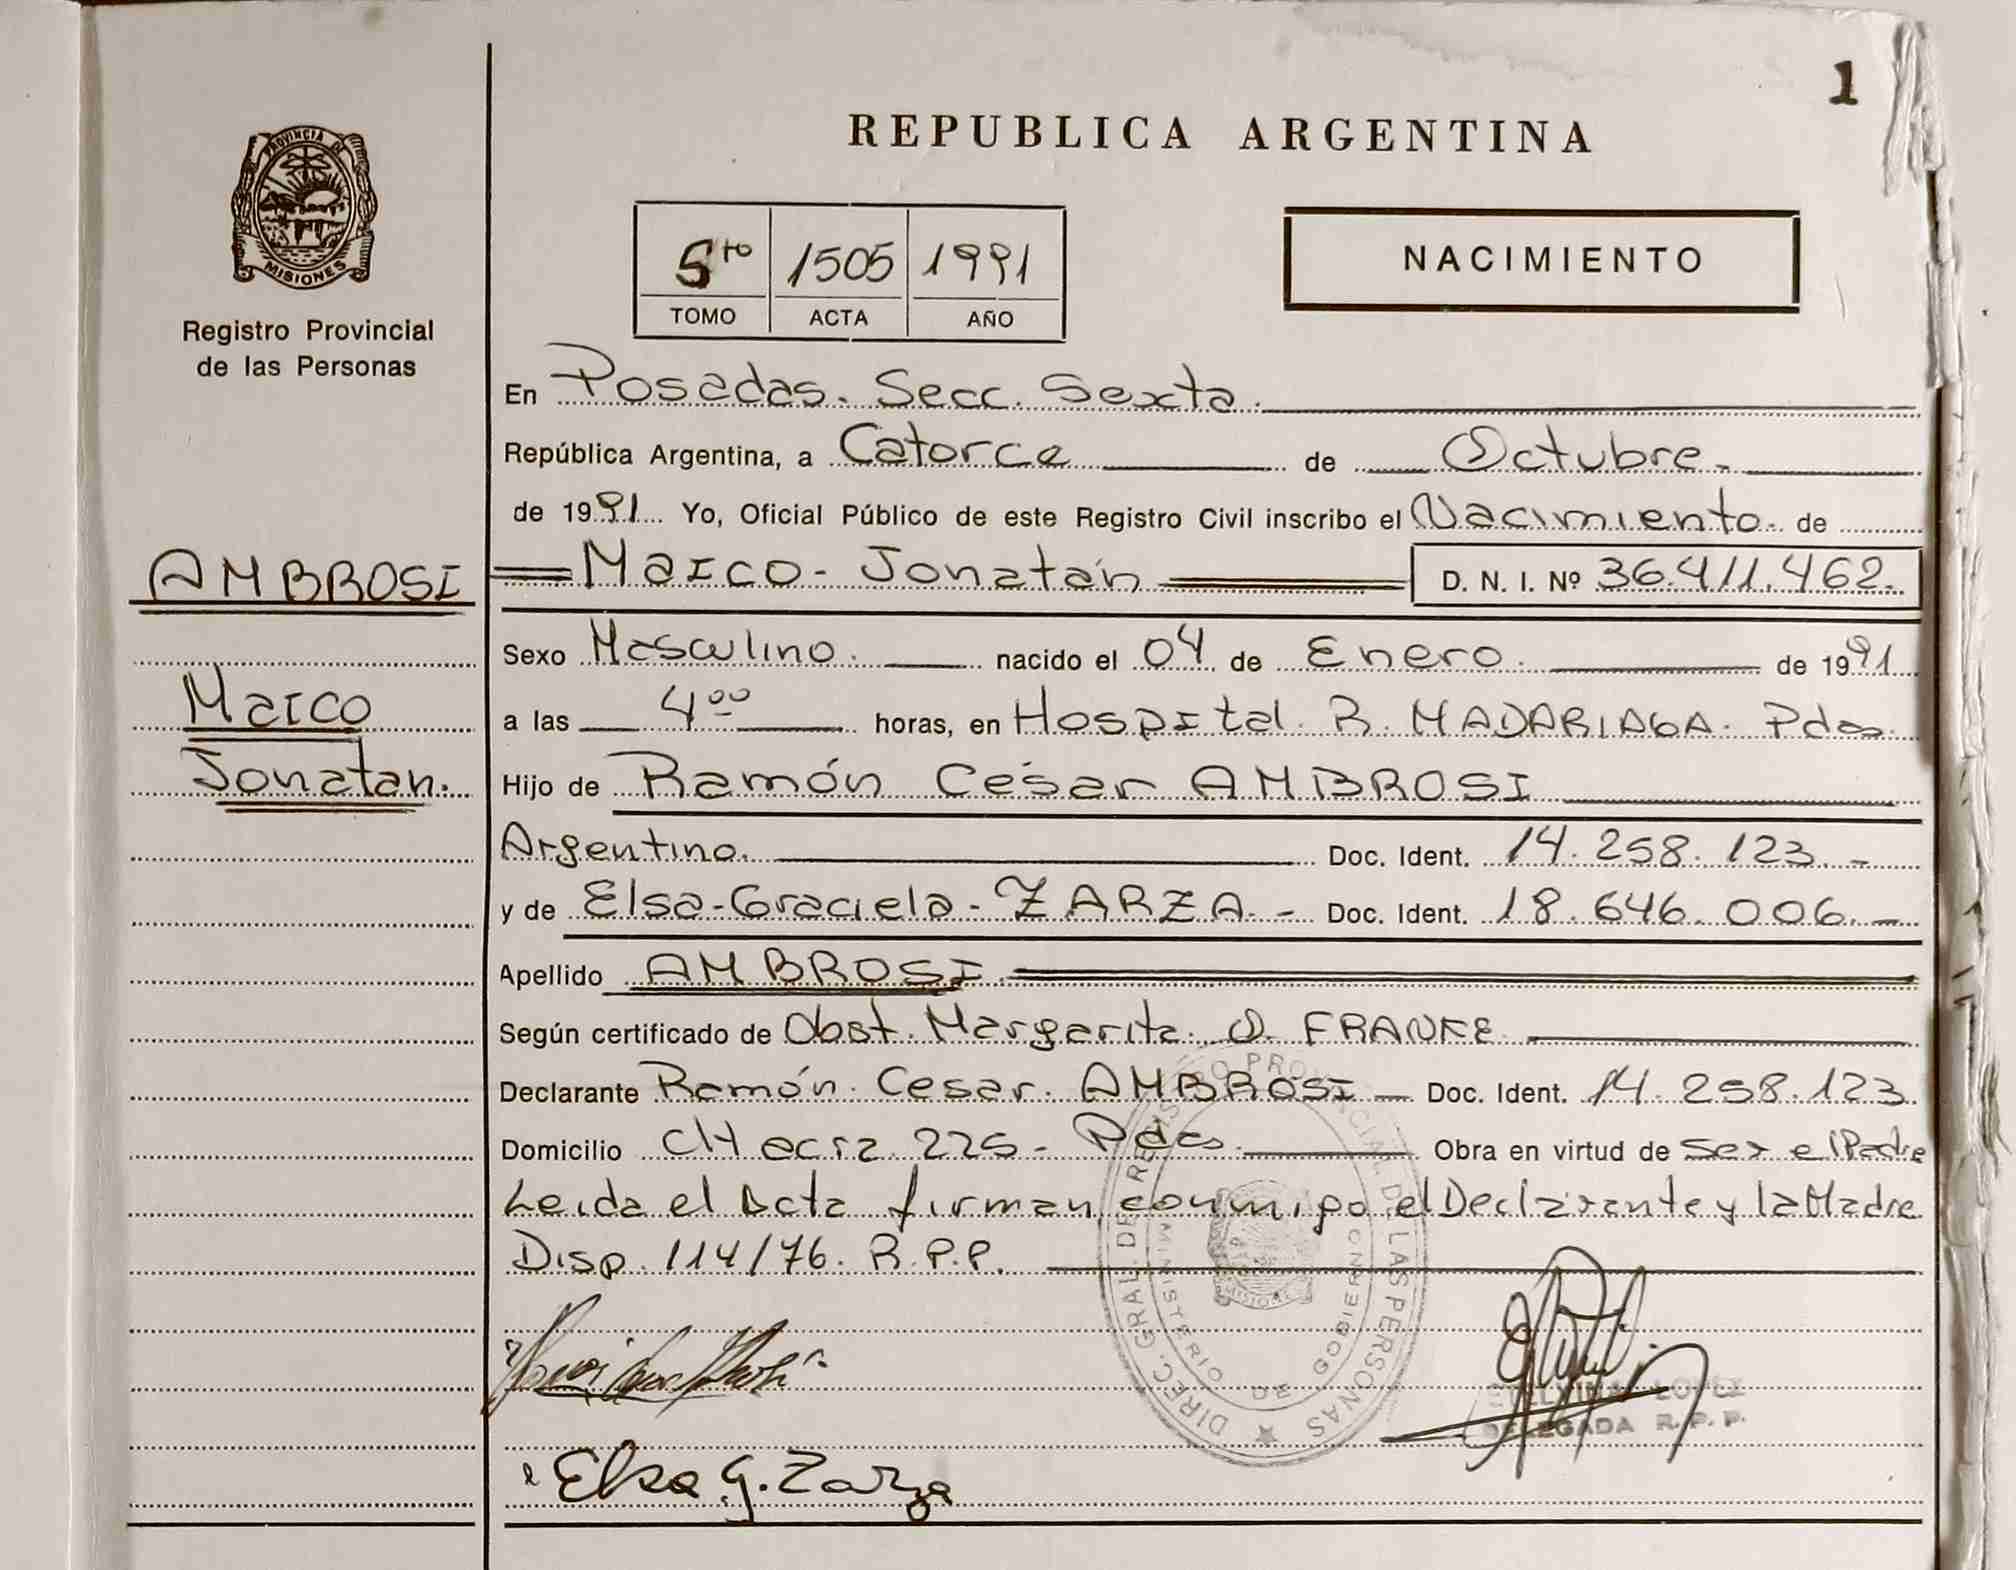 1
REPUBLICA ARGENTINA
PROVINCIA DE
MISIONES
Registro Provincial
de las Personas
5to 1505 1991
TOMO ACTA AÑO
NACIMIENTO
En Posadas. Secc. Sexta.
República Argentina, a Catorce de Octubre.
de 1991 Yo, Oficial Público de este Registro Civil inscribo el Nacimiento de
AMBROSI
Marco
Jonatan.
Marco - Jonatán D. N. I. Nº 36.411.462.
Sexo Masculino. nacido el 04 de Enero. de 1991
a las 4 00 horas, en Hospital. R. MADARIAGA. Pdas.
Hijo de Ramón César AMBROSI
Argentino. Doc. Ident. 14.258.123. -
y de Elsa-Graciela - ZARZA. - Doc. Ident. 18.646.006. -
Apellido AMBROSI.
Según certificado de Obst. Margarita. O. FRANKE
Declarante Ramón. Cesar. AMBROSI - Doc. Ident. 14.258.123.
Domicilio 225 - Pdas. Obra en virtud de ser el Padre
Leida el Acta firman conmigo el Declarante y la Madre
Disp. 114/76. R.P.P.
DIREC. GRAL. DE REGISTRO PROVINCIAL DE LAS PERSONAS
MINISTERIO DE GOBIERNO
MISIONES
LOPEZ
DELEGADA R. P. P.
Elsa G. Zarza